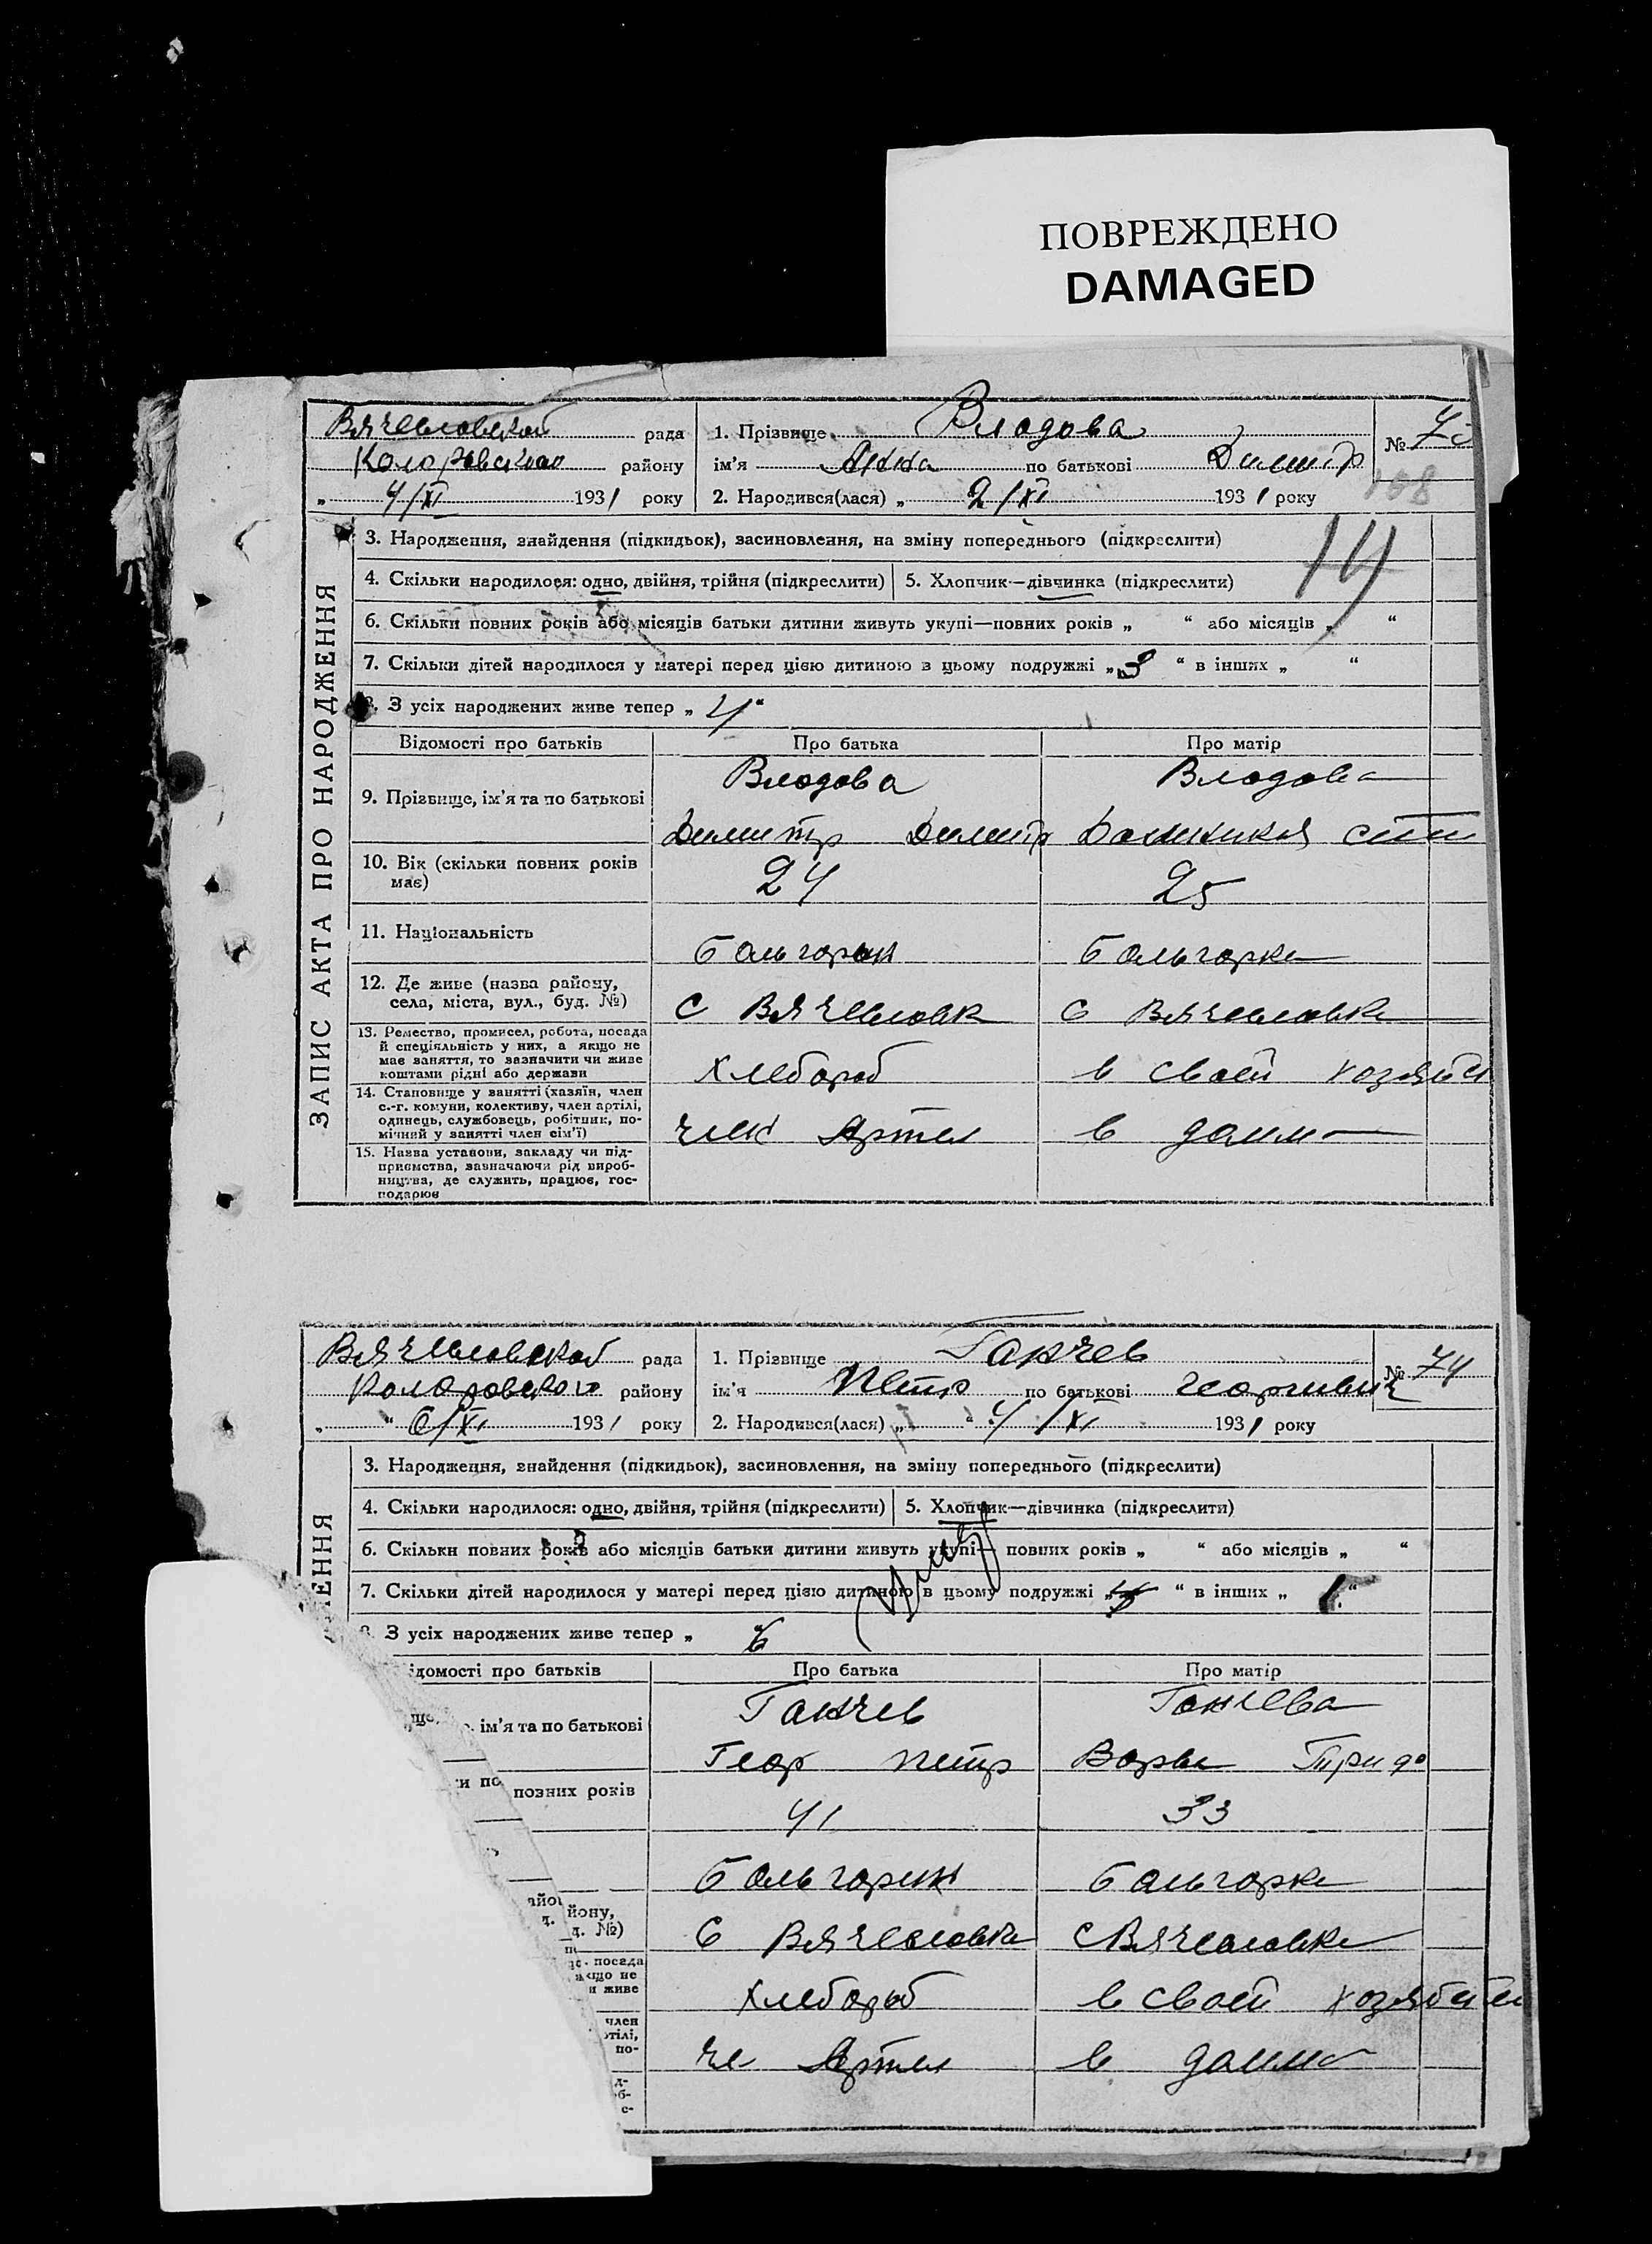 ПОВРЕЖДЕНО
DAMAGED
Вячеславской рада
Коларовского району
„ 4/XI 1931 року
1. Прізвище Влодова
ім'я Анна по батькові Димитр
2. Народився(лася) „ 2/XI 1931 року
№ 73
108
14
ЗАПИС АКТА ПРО НАРОДЖЕННЯ
3. Народження, знайдення (підкидьок), засиновлення, на зміну попереднього (підкреслити)
4. Скільки народилося: одно, двійня, трійня (підкреслити) 5. Хлопчик—дівчинка (підкреслити)
6. Скільки повних років або місяців батьки дитини живуть укупі—повних років „ “ або місяців „ “
7. Скільки дітей народилося у матері перед цією дитиною з цьому подружжі „3 “ в інших „ “
8. З усіх народжених живе тепер „ 4“
Відомості про батьків Про батька Про матір
9. Прізвище, ім'я та по батькові
Влодова Влодова
Димитр Димитр
10. Вік (скільки повних років
має)
24 25
11. Національність
Больгорин Больгорке
12. Де живе (назва району,
села, міста, вул., буд. №)
С Вячеславк С Вячеславке
13. Ремество, промисел, робота, посада
й спеціяльність у них, а якщо не
має заняття, то зазначити чи живе
коштами рідні або держави
Хлебороб в своей хозяйст
14. Становище у занятті (хазяїн, член
с.-г. комуни, колективу, член артілі,
одинець, службовець, робітник, по-
мічний у занятті член сім'ї)
член Артел в доим
15. Назва установи, закладу чи під-
приємства, зазначаючи рід вироб-
ництва, де служить, працює, гос-
подарює
Вячеславской рада
Коларовского району
„ “ 6/XI 1931 року
1. Прізвище Ганчев
ім'я Петр по батькові Георгиевич
2. Народився(лася) „ “ 4/XI 1931 року
№ 74
ЕННЯ
3. Народження, знайдення (підкидьок), засиновлення, на зміну попереднього (підкреслити)
4. Скільки народилося: одно, двійня, трійня (підкреслити) 5. Хлопчик—дівчинка (підкреслити)
6. Скільки повних років або місяців батьки дитини живуть укупі— повних років „ “ або місяців „ “
7. Скільки дітей народилося у матері перед цією дитиною в цьому подружжі „ “ в інших „ “
8. З усіх народжених живе тепер „ 6
ідомості про батьків Про батька Про матір
ім'я та по батькові
Ганчев Ганчева
Геор Петр Ворве Тридо
повних років
41 33
Больгорин Больгорке
йону,
д. №)
С Вячеславке С Вячеславке
посада
якщо не
и живе
Хлебороб в своей хозяйстве
член
тілі,
по-
че Артел в доим
д-
об-
с-